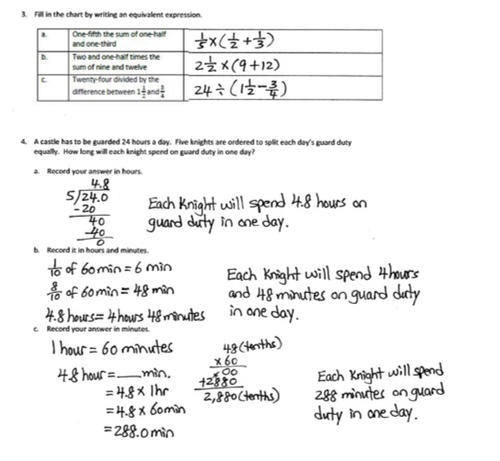 3. Fill in the chart by writing an equivalent expression.
a. One-fifth the sum of one-half and one-third 1/5 × (1/2 + 1/3)
b. Two and one-half times the sum of nine and twelve 2 1/2 × (9+12)
c. Twenty-four divided by the difference between 1 1/2 and 3/4 24 ÷ (1 1/2 − 3/4)
4. A castle has to be guarded 24 hours a day. Five knights are ordered to split each day's guard duty
equally. How long will each knight spend on guard duty in one day?
a. Record your answer in hours.
4.8
5/24.0
-20
40
-40
0
Each Knight will spend 4.8 hours on
guard duty in one day.
b. Record it in hours and minutes.
1/10 of 60 min = 6 min
8/10 of 60 min = 48 min
4.8 hours = 4 hours 48 minutes
Each Knight will spend 4 hours
and 48 minutes on guard duty
in one day.
c. Record your answer in minutes.
1 hour = 60 minutes
4.8 hour = ___ min.
= 4.8 × 1 hr
= 4.8 × 60 min
= 288.0 min
48 (tenths)
× 60
00
+2880
2,880 (tenths)
Each Knight will spend
288 minutes on guard
duty in one day.